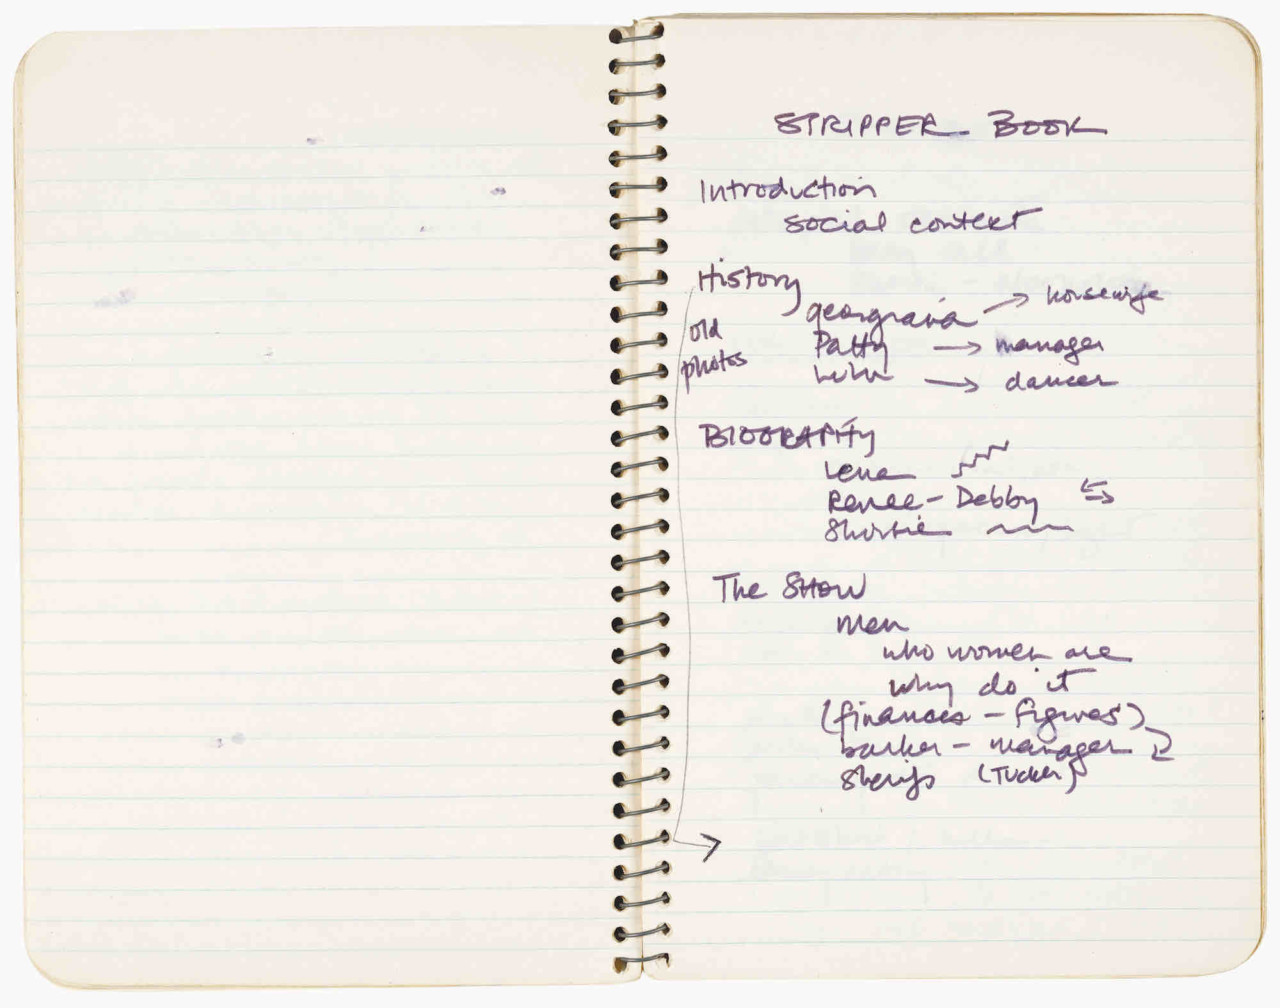 STRIPPER BOOK
Introduction
social context
History
georgraia → housewife
old
Patty → manager
photos
Lulu → dancer
BIOGRAPHY
Lena
Renee - Debby
Shortie
The SHOW
men
who women are
why do it
(finances - figures)
barker - manager
Sheriff (Tucker)